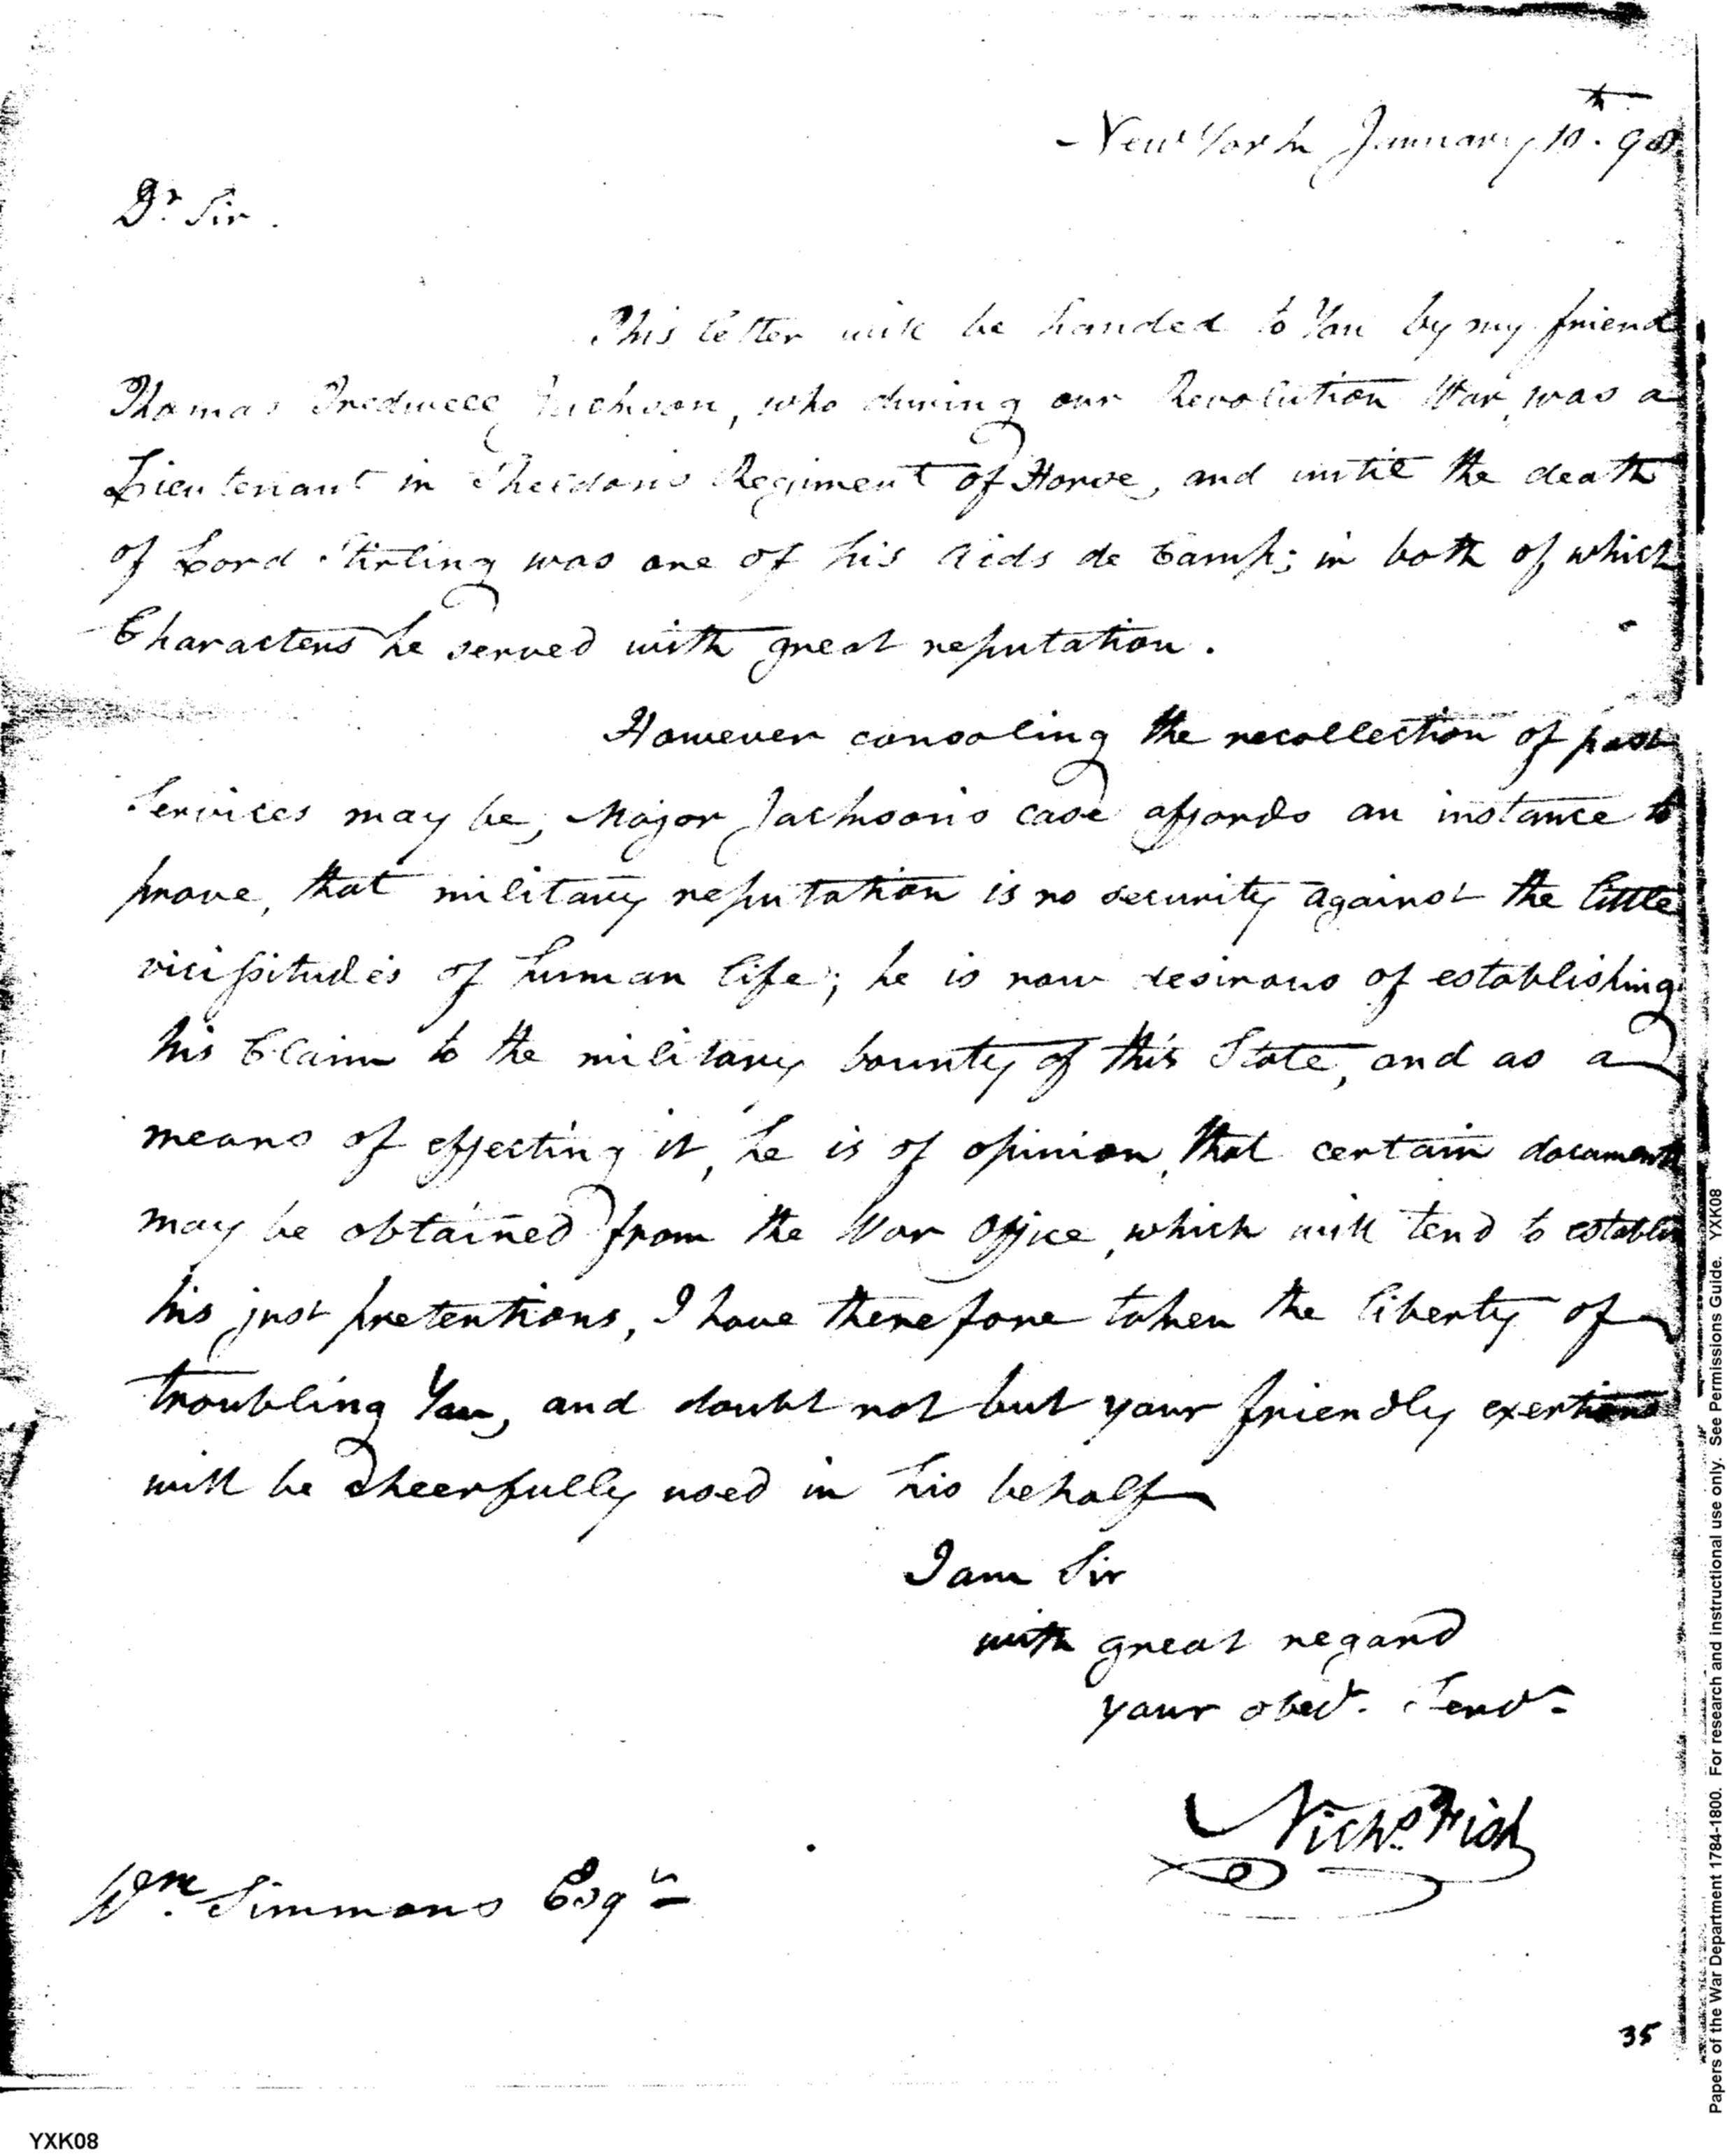 New York January 10th. 98
Dr. Sir.
This letter will be handed to You by my friend
Thomas Tredwell Jackson, who during our Revolution War, was a
Lieutenant in Sheldon's Regiment of Horse, and until the death
of Lord Stirling was one of his Aids de Camp; in both of which
Characters he served with great reputation.
However consoling the recollection of past
Services may be, Major Jackson's case affords an instance to
prove, that military reputation is no security against the little
vicissitudes of human life; he is now desirous of establishing
his Claim to the military bounty of this State, and as a
means of effecting it, he is of opinion, that certain documents
may be obtained from the War Office, which will tend to establish
his just pretentions, I have therefore taken the liberty of
troubling You, and doubt not but your friendly exertions
will be cheerfully used in his behalf
I am Sir
with great regard
your obedt. Servt.
Nichs. Fish
Wm. Simmons Esqr.
35
YXK08
Papers of the War Department 1784-1800. For research and instructional use only. See Permissions Guide. YXK08